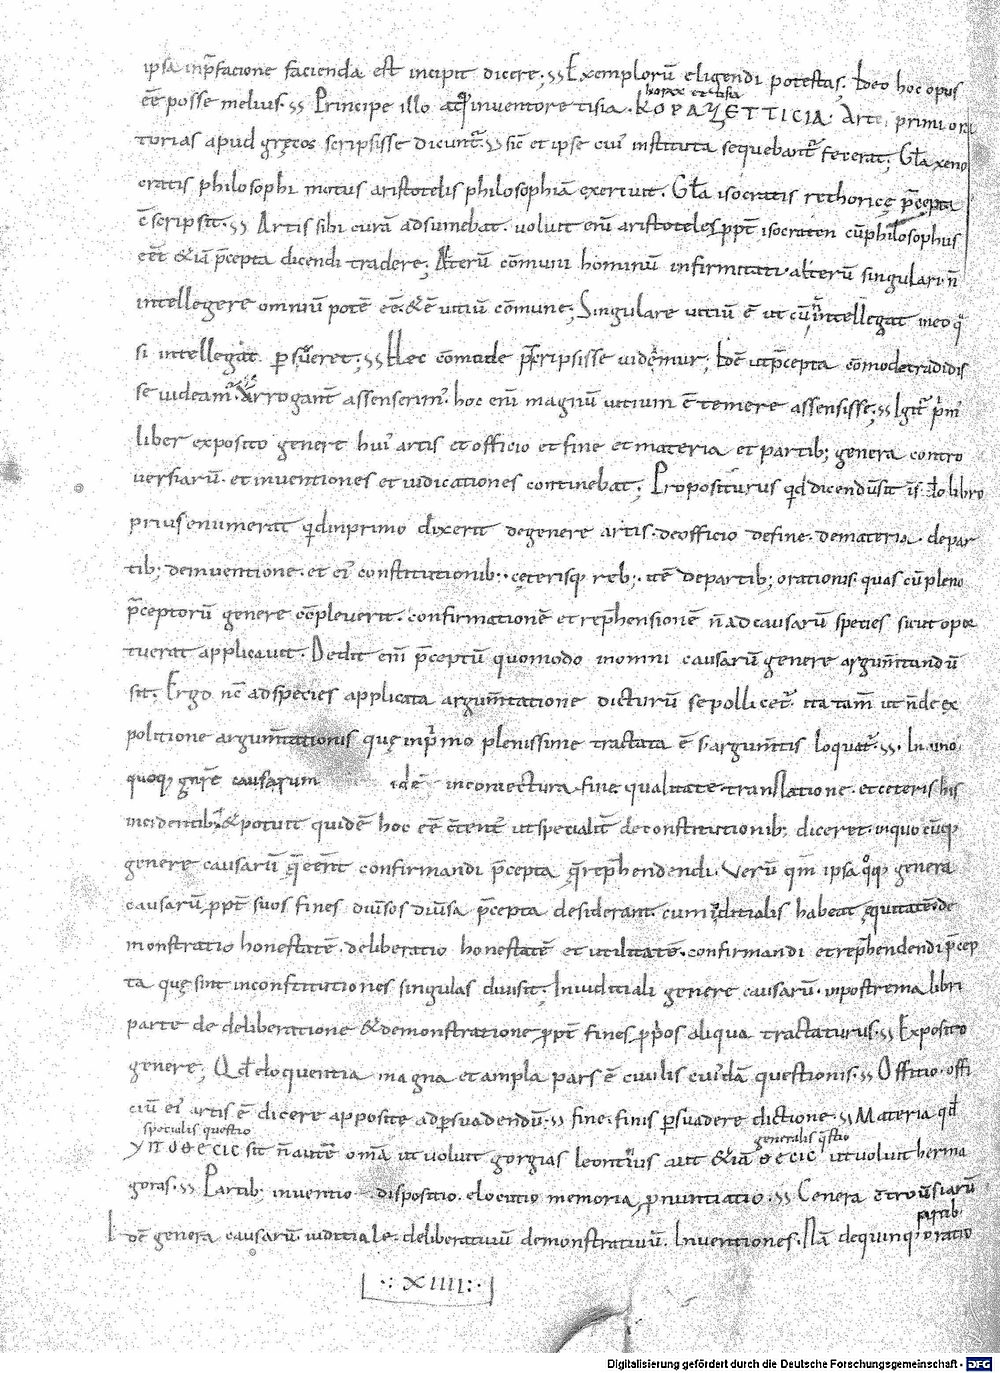 ipsa inp̄facione facienda est incipit dicere; Exemplorū eligendi potestas; Ideo hoc opus
korax et tisia
eē posse melius Principe illo atq; inventore tisia · ΚΟΡΑΖ ΕΤ ΤΙCΙΑ · Arte primi ora
torias apud gręcos scripsisse dicunt sic et ipse cui' instituta sequebant' fecerat; Gła xeno
cratis philosophi motus aristotelis philosophiā exercuit. Gła isocratis rethoricę p̄cepta
cscripsit. Artis sibi curā adsumebat. voluit enī aristoteles ppt isocraten cū philosophus
eēt &iā p̄cepta dicendi tradere; Alterū cōmuni hominū infirmitati alterū singulari n̄
intellegere omniū potē eē. & ē uitiū cōmune; Singulare uitiū ē ut cū n̄ intellegat ineo q'
si intellegat pseueret; Hec comode p̄scripsisse uidemur; Idē ut p̄cepta cōmode tradidis
se uideam'. Arrogant' assenserim'. hoc enī magnū uitium ē temere assensisse; Igit' prim'
liber exposito genere hui' artis et officio et fine et materia et partib; genera contro
versiarū. et inventiones et iudicationes continebat; Propositurus qd dicendū sit īs̄. Ido libro
prius enumerat qd inprimo dixerit degenere artis. deofficio define. demateria. depar
tib; deinventione. et ei' constitutionib; cęterisq; reb; itē departib; orationis. quas cū pleno
p̄ceptorū genere cōpleverit. confirmationē et rep̄hensionē n̄ ad causarū species sicut opor
tuerat applicauit. Dedit enī p̄ceptū quomodo inomni causarū genere argum̄tandū
sit. Ergo nc̄ adspecies applicata argum̄tatione dicturū se pollicet'. ita tam̄ ut n̄ de ex
politione argum̄tationis quę inprimo plenissime tractata ē s; argum̄tis loquat'. In uno
quoq; gn̄re causarum idē inconiectura. fine. qualitate. translatione. et ceteris his
incidentib; & potuit quidē hoc eē cōtent' ut specialit' deconstitutionib; diceret. inquo cūq;
genere causarū q̄ eēnt confirmandi p̄cepta q̄ rep̄hendendi. Verū qm̄ ipsa q̊q; genera
causarū ppt suos fines diu̅sos diu̅sa p̄cepta desiderant. cum iuditialis habeat ęquitatē. de
monstratio honestatē. deliberatio honestatē et utilitatē. confirmandi et rep̄hendendi p̄cep
ta quę sint inconstitutiones singulas diuisit. Iniuditiali genere causarū. inpostrema libri
parte de deliberatione & demonstratione ppt fines pp̄os aliqua tractaturus. Exposito
genere; Qd eloquentia magna et ampla pars ē civilis cui'dā questionis. Offitio. offi
ciū ei' artis ē dicere apposite adp̱suadendū. fine. finis p̱suadere dictione. Materia qd
specialis questio generalis q̄stio
ΥΠΟΘΕCΙC sit n̄ autē omā ut voluit gorgias leontin'us aut &iā ΘΕCΙC ut voluit herma
goras. Partib; inventio dispositio. elocutio memoria, pnuntiatio. Genera ctrou̅siarū
Idē genera causarū. iuditiale. deliberatiuū demonstratiuū. Inventiones. Nā dequinq; partib; oratio
XIIII
Digitalisierung gefördert durch die Deutsche Forschungsgemeinschaft - DFG